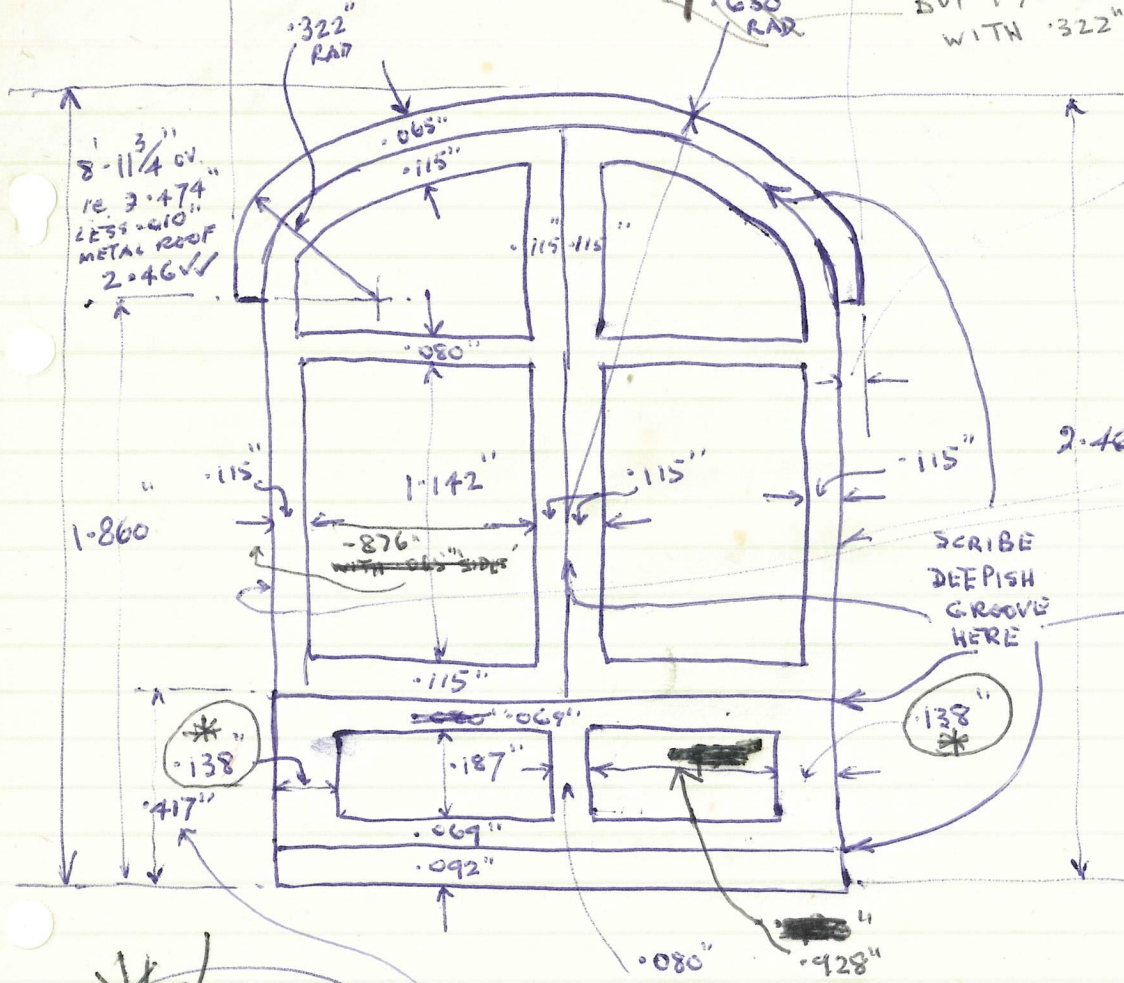 .322"
RAD
.650
RAD
WITH .322"
8'-11 3/4" OV.
LESS .010"
METAL ROOF
2.46 ✓✓
.065"
.115"
.115" .115"
.080"
.115"
1.142"
.115"
.115"
2.46
1.860"
.876"
WITH .065" SIDES
SCRIBE
DEEPISH
GROOVE
HERE
.115"
.069"
*
.138"
.138"
*
.187"
.417"
.069"
.092"
.080"
.928"